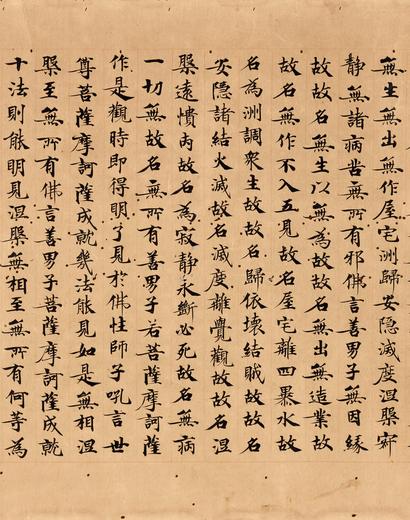 無生無出無作屋宅洲歸安隱滅度涅槃寂
静無諸病苦無所有邪佛言善男子無因緣
故故名無生以無為故故名無出無造業故
故名無作不入五見故名屋宅離四暴水故
名為洲調衆生故故名歸依壞結賊故故名
安隱諸結火滅故名滅度離覺觀故故名涅
槃遠憒丙故名為寂靜永斷必死故名無病
一切無故名無所有善男子若菩薩摩訶薩
作是觀時即得明了見於佛性師子吼言世
尊菩薩摩訶薩成就幾法能見如是無相涅
槃至無所有佛言善男子菩薩摩訶薩成就
十法則能明見涅槃無相至無所有何等為